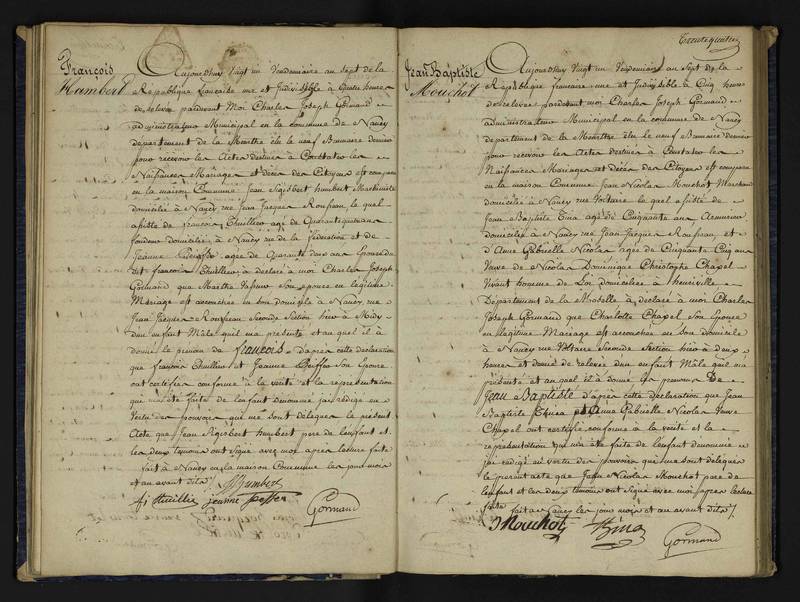 François
Humbert
Aujourd'huy Vingt un Vendemiaire an Sept de la
Republique française une et Indivisible à quatre heures
de relevée pardevant Moi Charles Joseph Gormand
administrateur Municipal en la Commune de Nancy
département de la Meurthe élu le neuf Brumaire dernier
pour recevoir les Actes destinés à Constater les
Naissances Mariages et décès des Citoyens est comparu
en la maison Commune Jean Sigisbert humbert
domicilié à Nancy rue Jean Jacques Rousseau lequel
assisté de francois Thuillier agé de Quarante
fondeur domicilié à Nancy rue de la féderation et de
Jeanne agée de Quarante deux ans Epouse du
dit françois Thuillier à déclaré à moi Charles Joseph
Gormand que Marthe son epouse en légitime
Mariage est accouchée en son domicile à Nancy rue
Jean Jacques Rousseau Seconde Section hier à Midy
d'un enfant Mâle quil ma présenté et au quel il à
donné le prenom de françois. D'après cette déclaration
que françois Thuillier et Jeanne Son Epouse
ont certifiée conforme à la verité et la représentation
qui ma été faite de lenfant denommé jai rédigé en
vertu des pouvoirs qui me sont délégués le présent
Acte que Jean Sigisbert humbert pere de lenfant et
les deux temoins ont signé avec moi après lecture faite
fait à Nancy en la maison Commune les jour mois
et an avant dits /.
humbert
jeanne
Gormand
Trente quatre
Jean Baptiste
Mouchot
Aujourd'huy Vingt un Vendemiaire an Sept de la
République francaise une et Indivisible à Cinq heures
de relevée pardevant moi Charles Joseph Gormand
administrateur Municipal en la commune de Nancy
departement de la Meurthe élu le neuf Brumaire dernier
pour recevoir les Actes destinés à Constater les
Naissances Mariages et décès des Citoyens est comparu
en la maison Commune Jean Nicolas Mouchot Marchand
domicilié à Nancy rue Voltaire le quel assisté de
Jean Baptiste agé de Cinquante ans
domicilié à Nancy rue Jean Jacques Rousseau et
d'Anne Gabrielle Nicolas agée de Cinquante Cinq ans
Veuve de Nicolas Dominique Christophe Chapel
Vivant homme de Loi domiciliée à
Departement de la Moselle à déclaré à moi Charles
Joseph Gormand que Charlotte Chapel Son Epouse
en légitime Mariage est accouchée en Son domicile
à Nancy rue Voltaire Seconde Section hier à deux
heures et demie de relevée d'un enfant Mâle quil ma
présenté et au quel il à donné les prenoms De
Jean Baptiste d'après cette déclaration que Jean
Baptiste et Anne Gabrielle Nicolas Veuve
Chapel ont certifiée conforme à la verité et la
représentation qui ma été faite de lenfant denommé
jai rédigé en vertu des pouvoirs qui me sont délégués
le présent acte que Jean Nicolas Mouchot pere de
lenfant et les deux temoins ont Signé avec moi après lecture
faite fait à Nancy les jour mois et an avant dits /.
Mouchot
Gormand